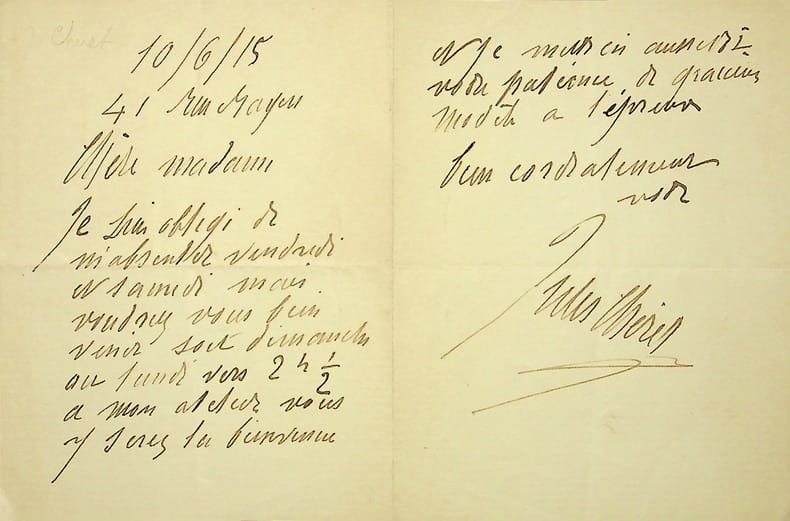 Cheret
10/6/15
41 Rue
Chère madame
Je suis obligé de
m'absenter vendredi
et samedi mais
voudrez vous bien
venir soit dimanche
ou lundi vers 2 h 1/2
a mon atelier vous
y serez la bienvenue
et je mettrai aussitôt
votre patience de gracieux
modèle a l'épreuve
bien cordialement
votre
Jules Chéret